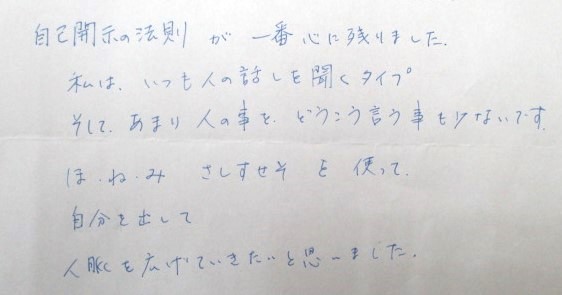 自己開示の法則 が 一番 心に残りました.
私は、いつも人の話しを聞くタイプ
そして、あまり人の事を、どうこう言う事も少ないです.
ほ・ね・み さしすせそ を 使って、
自分を出して
人脈を広げていきたいと思いました.